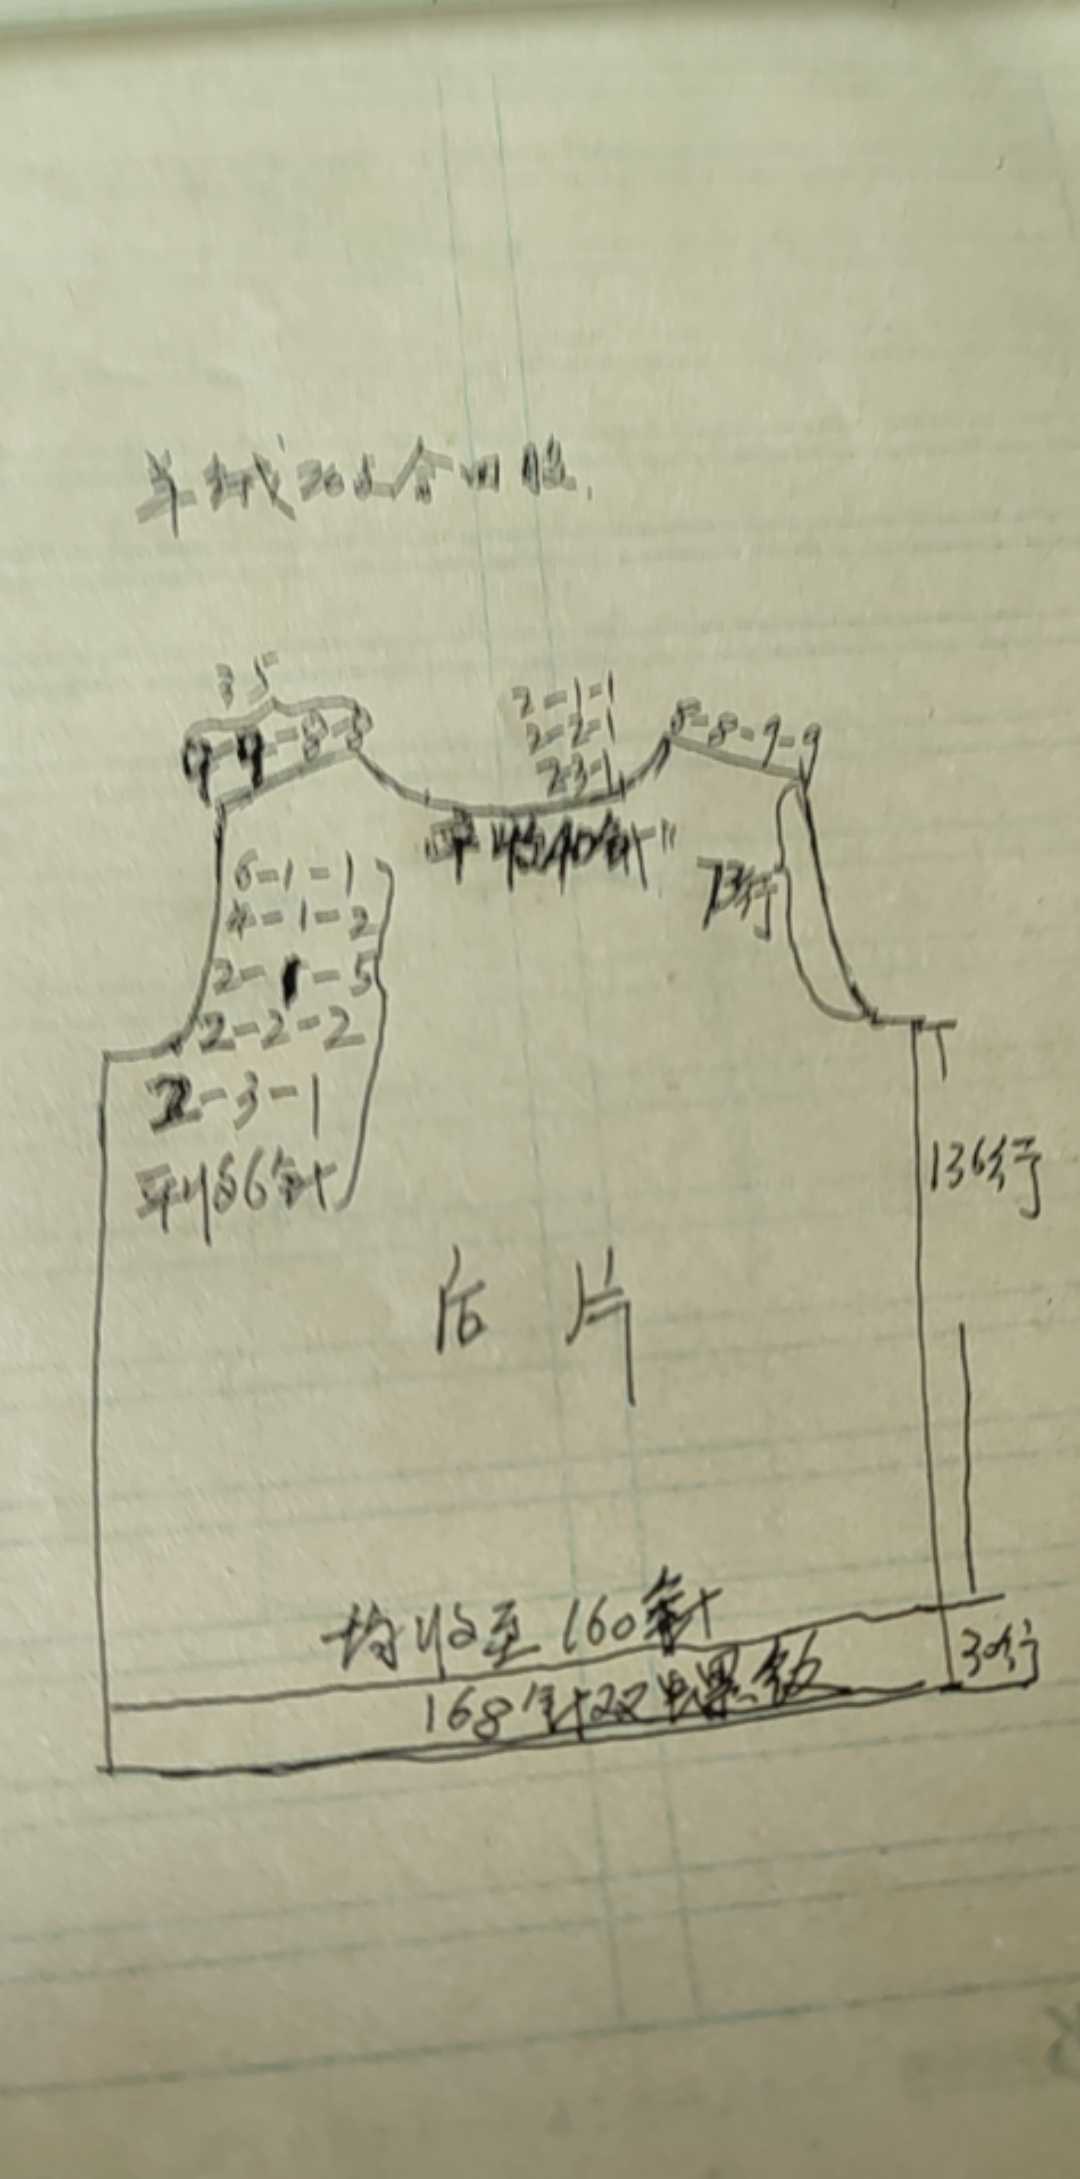 羊绒26支合四股.
35
9-9-8-8
2-1-1
2-2-1
2-3-1
8-8-9-9
平收40针
6-1-1
4-1-2
2-1-5
2-2-2
2-3-1
平收6针
73行
136行
后片
均收至160针
168针双螺纹
30行